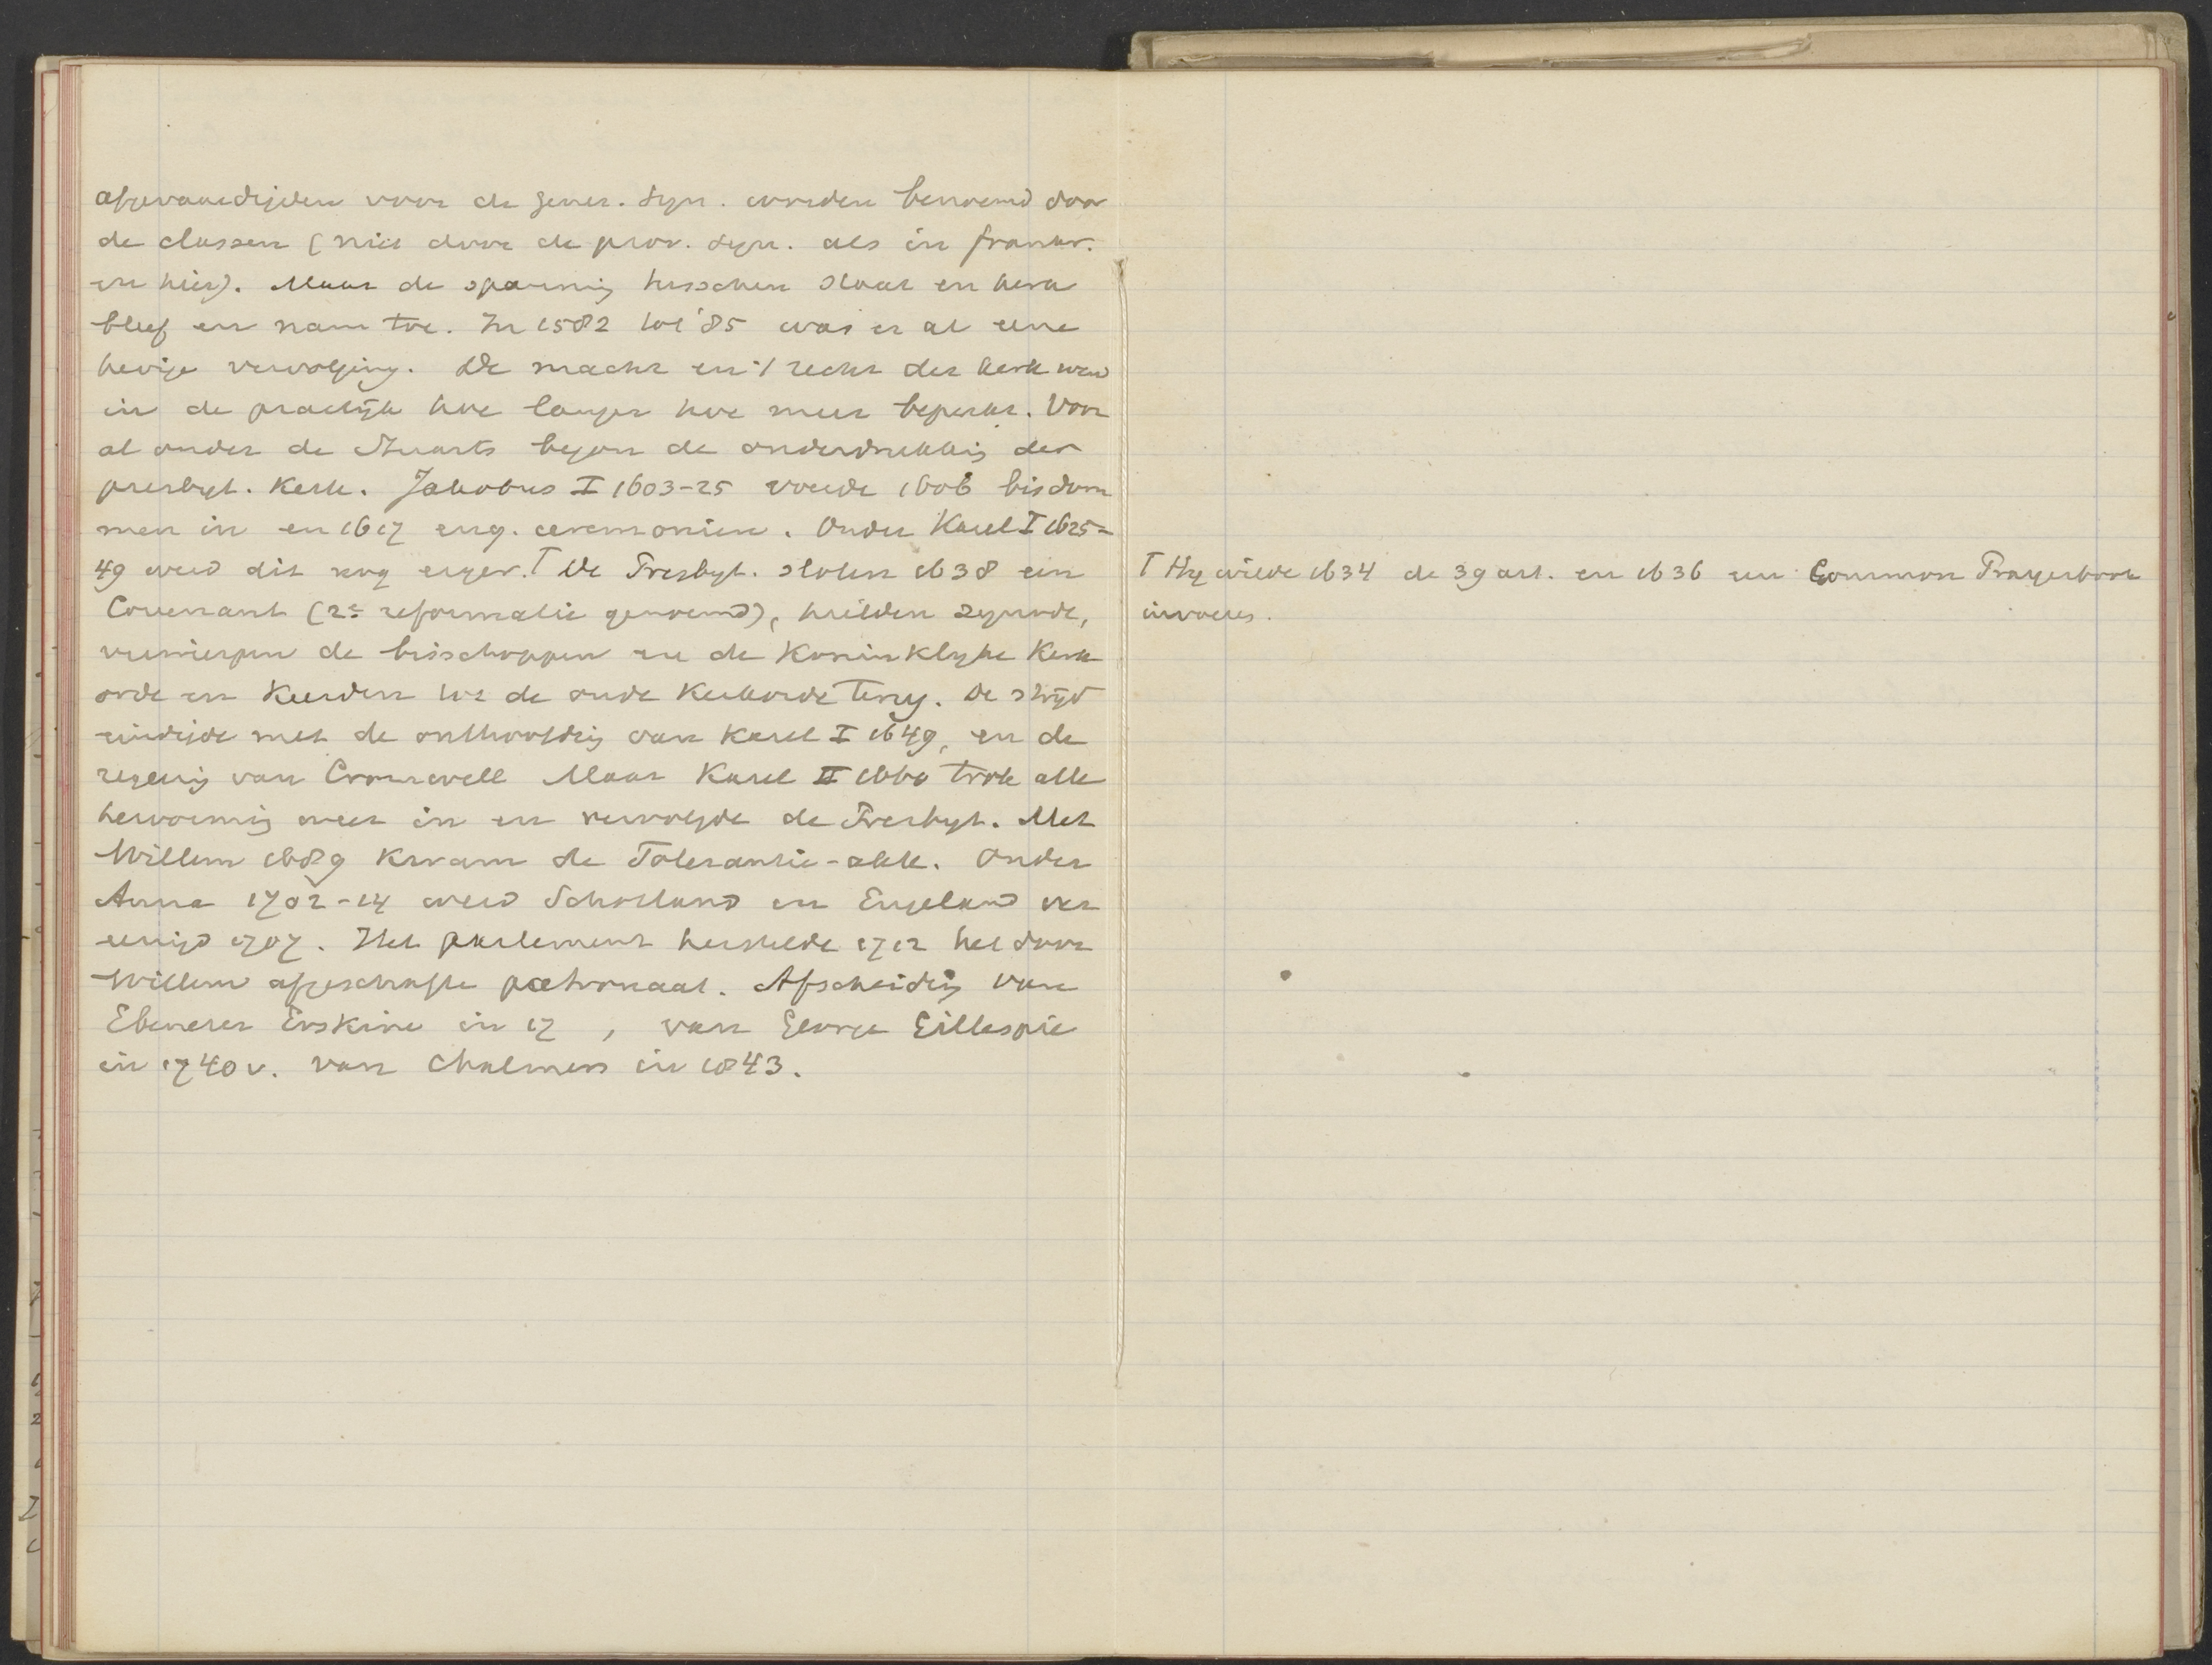 afgevaardigden voor de gener. syn. worden benoemd door
de classen (niet door de prov. syn. als in frankr.
en hier). Maar de spanning tusschen staat en kerk
bleef en nam toe. In 1582 tot '85 was er al eene
hevige vervolging. De macht en 't recht der kerk werd
in de practijk hoe langer hoe meer beperkt. Voor
al onder de Stuarts begon de onderdrukking der
presbyt. Kerk. Jakobus I 1603-25 voerde 1606 bisdom
men in en 1617 eng. ceremonien. Onder Karel I 1625-
49 werd dit nog erger. T De Presbyt. sloten 1638 een
Covenant (2e reformatie genoemd), hielden synode,
verwierpen de bisschoppen en de Koninklyke Kerk
orde en Keerden tot de oude Kerkorde terug. De strijd
eindigde met de onthoofding van Karel I 1649, en de
regering van Cromwell Maar Karel II 1660 trok alle
hervorming weer in en vervolgde de Presbyt. Met
Willem 1689 Kwam de Tolerantie-akte. Onder
Anna 1702-14 werd Schotland en Engeland ver
eenigd 1707. Het parlement herstelde 1712 het door
Willem afgeschafte patronaat. Afscheiding van
Ebenezer Erskine in 17 , van George Gillespie
in 1740 v. van Chalmers in 1843.
T Hy wilde 1634 de 39 art. en 1636 een Common Prayerbook
invoeren.